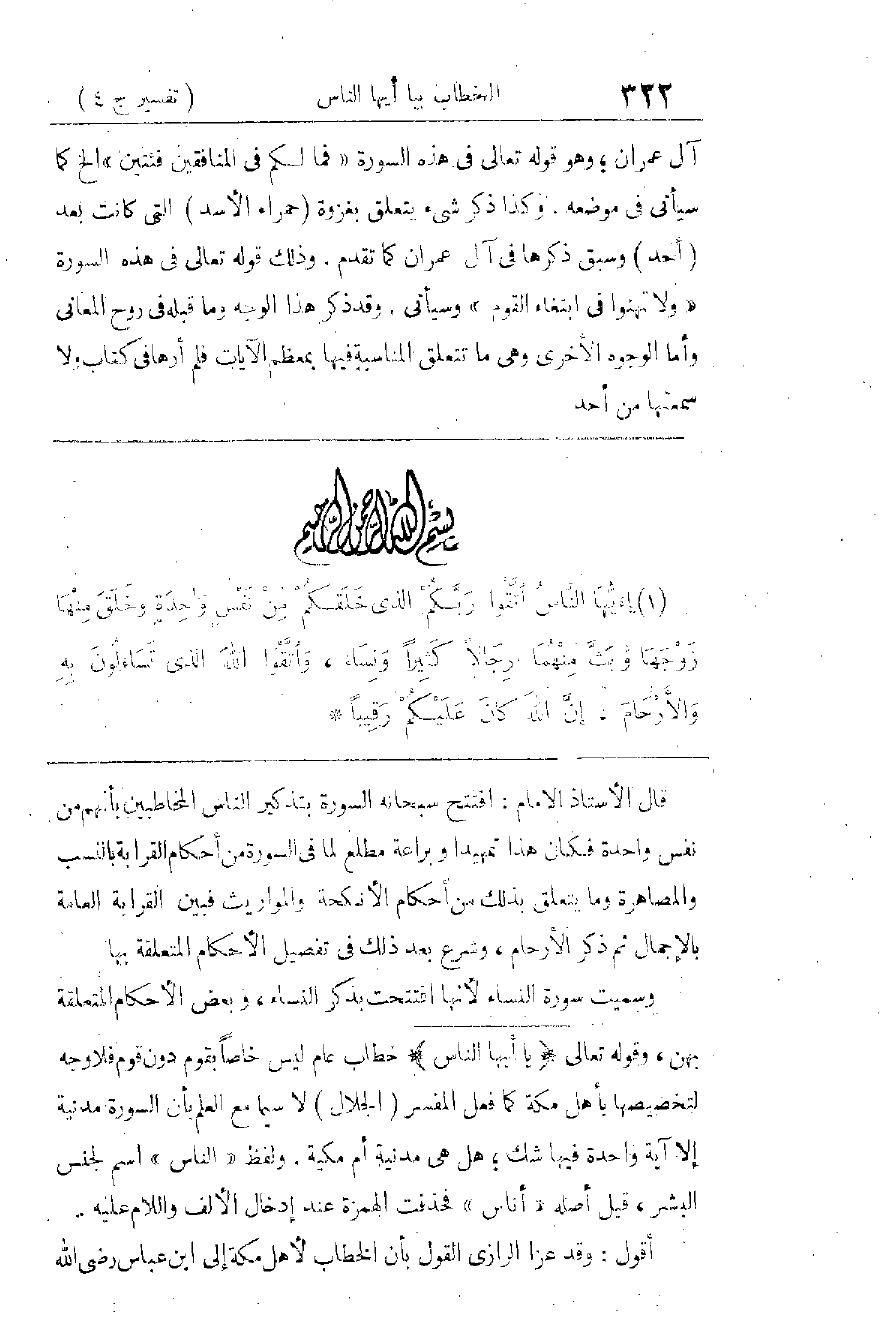 ٣٢٢ الخطاب بيا أيها الناس ( تفسير ج ٤ )
آل عمران ؛ وهو قوله تعالى فى هذه السورة « فما لكم فى المنافقين فئتين »الخ كما
سيأتى فى موضعه . وكذا ذكر شىء يتعلق بغزوة (حمراء الأسد ) التى كانت بعد
( أحد ) وسبق ذكرها فى آل عمران كما تقدم . وذلك قوله تعالى فى هذه السورة
« ولا تهنوا فى ابتغاء القوم » وسيأتى . وقد ذكر هذا الوجه وما قبله فى روح المعانى
وأما الوجوه الأخرى وهى ما تتعلق المناسبة فيها بمعظم الآيات فلم أرها فى كتاب ولا
سمعتها من أحد
بسم الله الرحمن الرحيم
(١) يٰأَيُّهَا النَّاسُ اُتَّقُوا رَبَّكُمْ الذى خَلَقَكُمْ مِنْ نَفْسٍ وَاحِدَةٍ وخَلَقَ مِنْهَا
زَوْجَهَا وَبَثَّ مِنْهُمَا رِجَالاً كَثِيراً وَنِسَاء ، وَاُتَّقُوا اللهَ الذى تَسَاءلُونَ بِهِ
وَالأَرْحَامَ ، إِنَّ اللهَ كَانَ عَلَيْكُمْ رَقِيباً *
قال الأستاذ الإمام : افتتح سبحانه السورة بتذكير الناس المخاطبين بأنهم من
نفس واحدة فكان هذا تمهيدا وبراعة مطلع لما فى السورة من أحكام القرابة بالنسب
والمصاهرة وما يتعلق بذلك من أحكام الأنكحة والمواريث فبين القرابة العامة
بالإجمال ثم ذكر الأرحام ، وشرع بعد ذلك فى تفصيل الأحكام المتعلقة بها
وسميت سورة النساء لأنها افتتحت بذكر النساء ، وبعض الأحكام المتعلقة
بهن ، وقوله تعالى ﴿ يا أيها الناس ﴾ خطاب عام ليس خاصاً بقوم دون قوم فلا وجه
لتخصيصها بأهل مكة كما فعل المفسر ( الجلال ) لا سيما مع العلم بأن السورة مدنية
إلا آية واحدة فيها شك ؛ هل هى مدنية أم مكية . ولفظ « الناس » اسم لجنس
البشر ، قيل أصله « أناس » فحذفت الهمزة عند إدخال الألف واللام عليه .
أقول : وقد عزا الرازى القول بأن الخطاب لأهل مكة إلى ابن عباس رضى الله